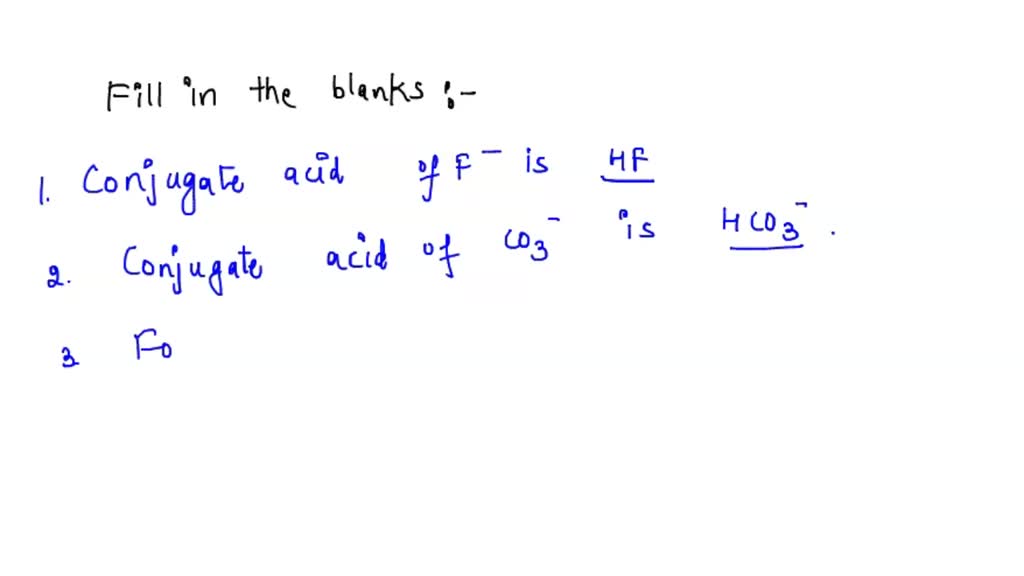 Fill in the blanks :-
1. Conjugate acid of F⁻ is HF
2. Conjugate acid of CO₃⁻ is HCO₃⁻.
3 Fo